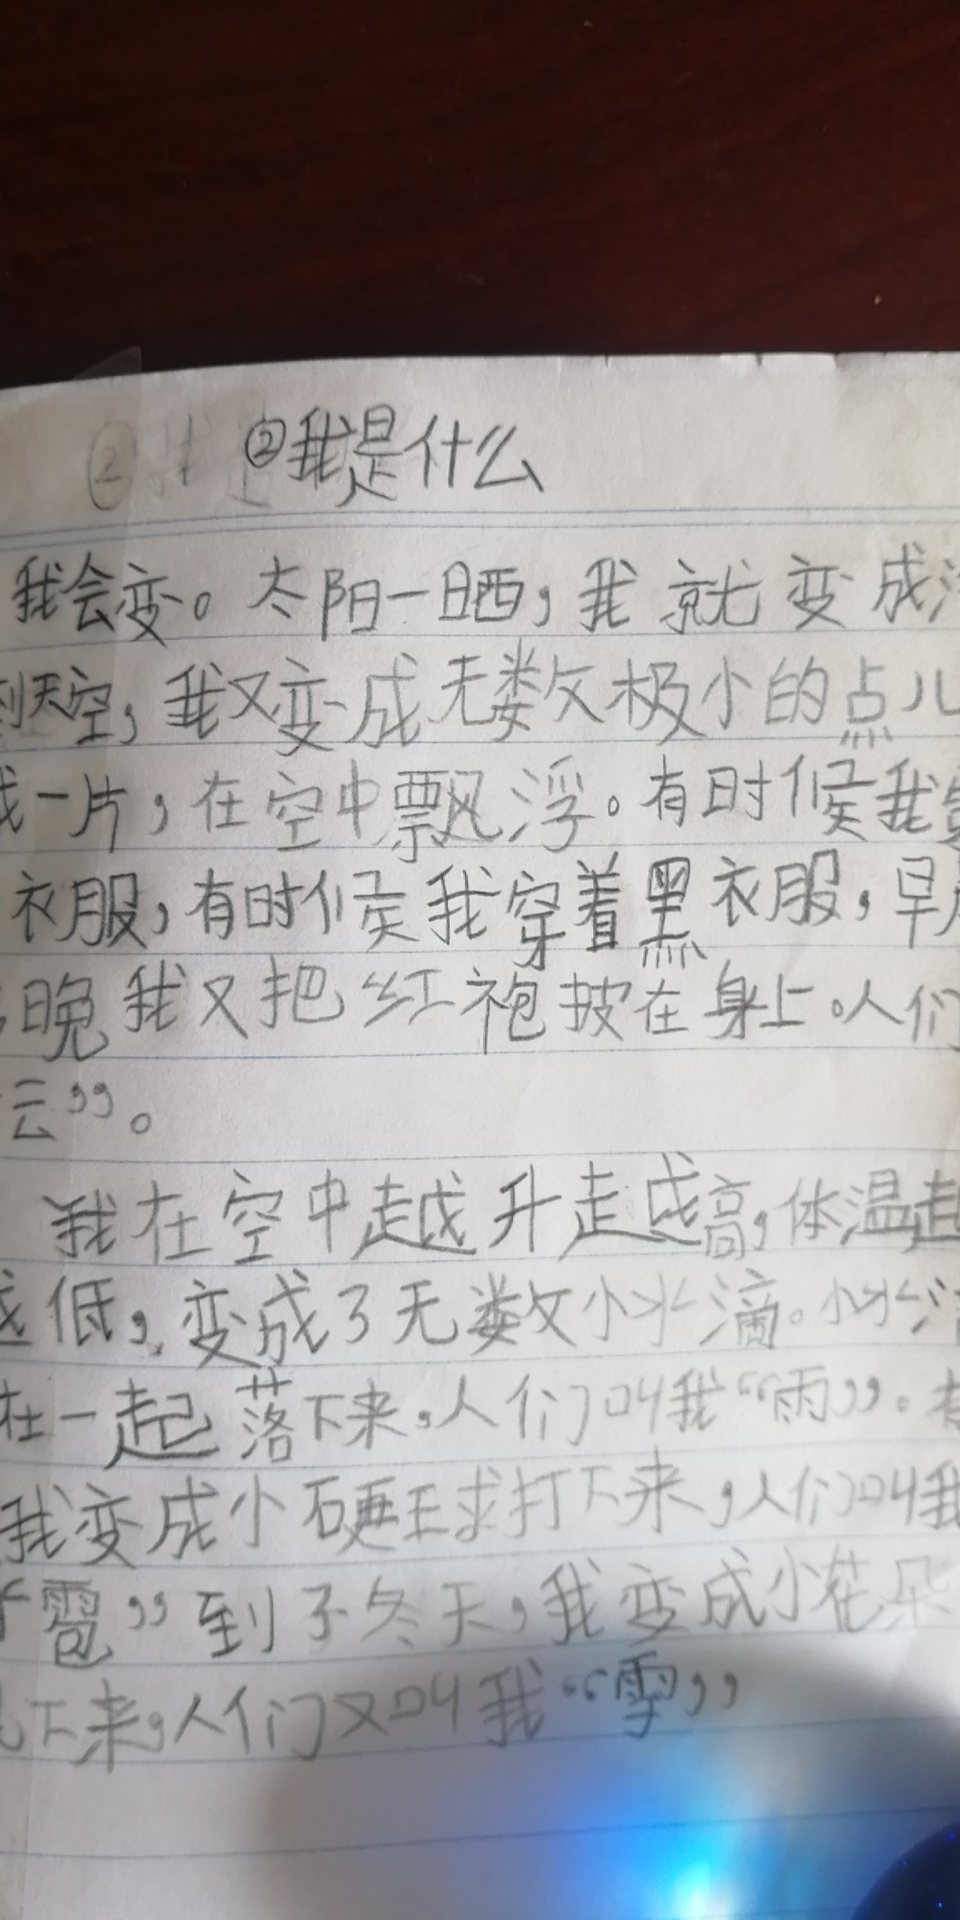 ②我是什么
我会变。太阳一晒,我就变成
到天空,我又变成无数极小的点儿
一片,在空中飘浮。有时候我穿
衣服,有时候我穿着黑衣服,早
晚我又把红袍披在身上。人们
云”。
我在空中越升越高,体温越
越低,变成了无数小水滴。小水滴
在一起落下来,人们叫我“雨”。有
我变成小硬球打下来,人们叫我
“雹”到了冬天,我变成小花朵
下来,人们又叫我“雪”